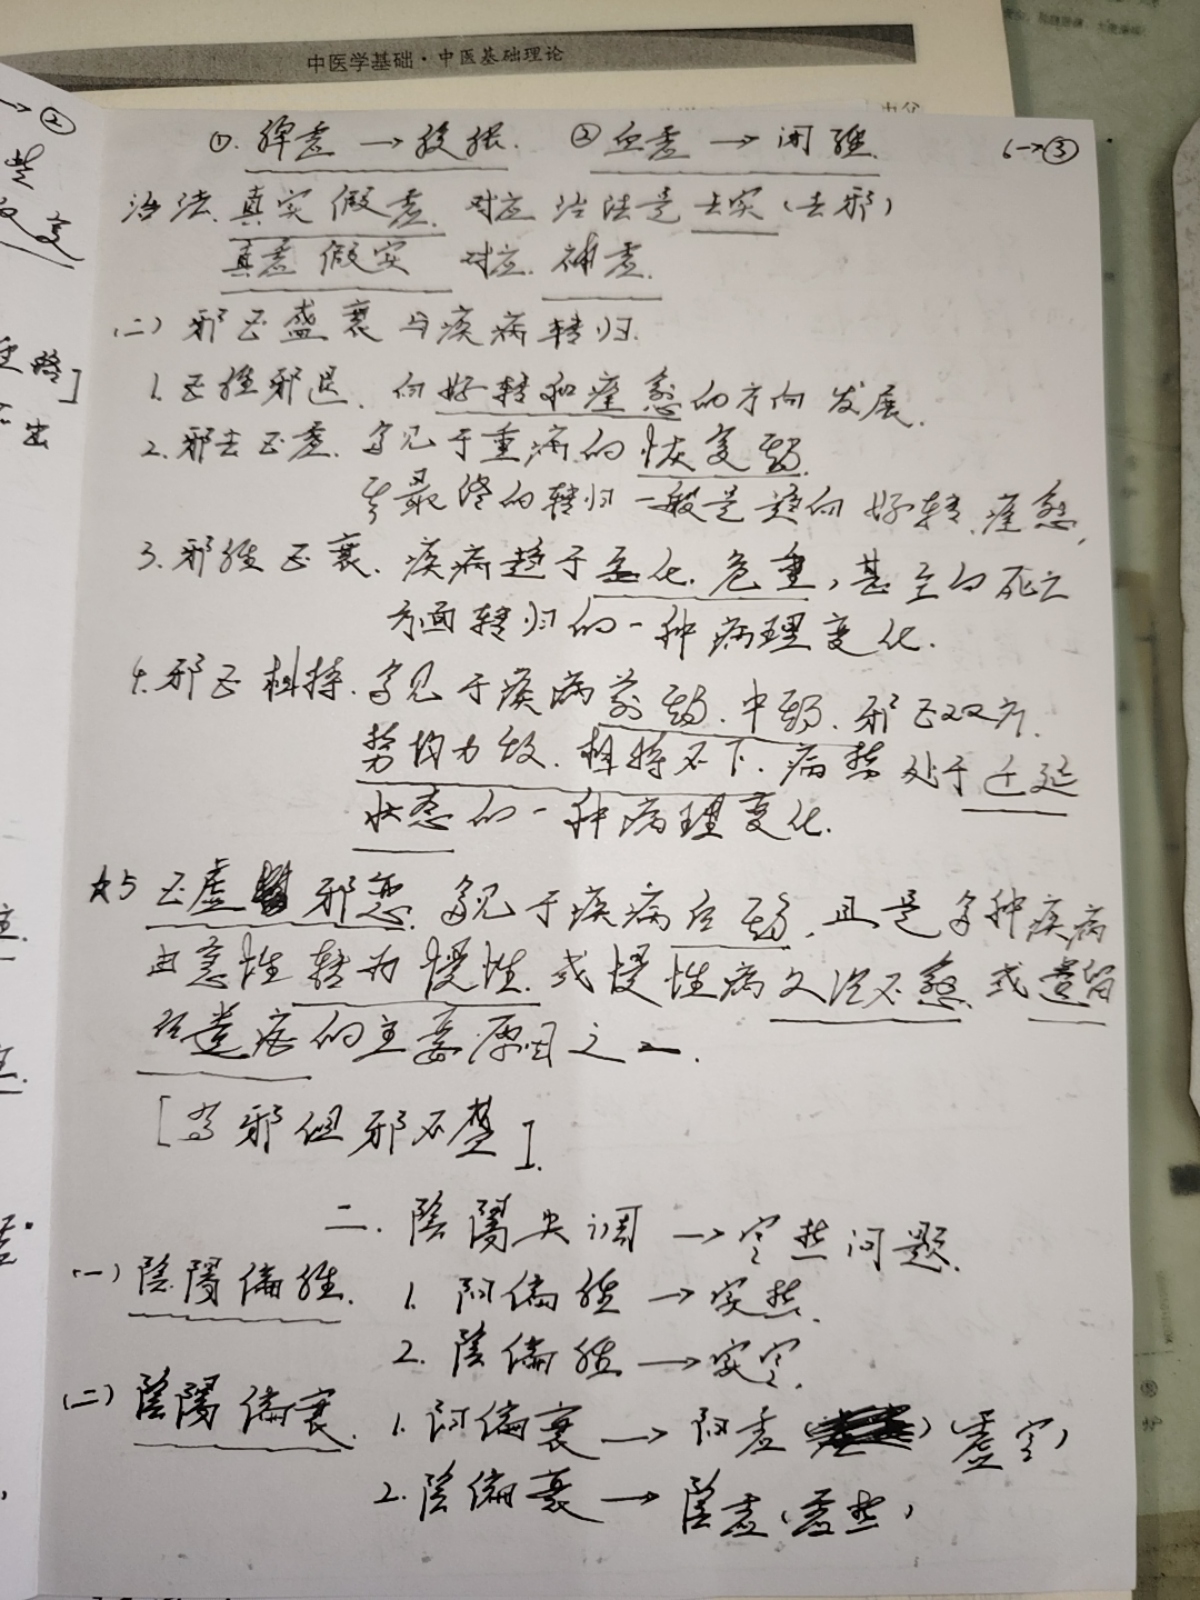 中医学基础·中医基础理论
→②
6→③
①.脾虚→腹胀. ②血虚→闭经.
治法.真实假虚.对应治法是去实(去邪)
真虚假实 对应.补虚.
(二)邪正盛衰与疾病转归.
1.正胜邪退、向好转和痊愈的方向发展.
2.邪去正虚.多见于重病的恢复期.
其最终的转归一般是趋向好转、痊愈,
3.邪胜正衰.疾病趋于恶化.危重,甚至向死亡
方面转归的一种病理变化.
4.邪正相持.多见于疾病前期.中期.邪正双方.
势均力敌.相持不下.病势处于迁延
状态的一种病理变化.
☆5 正虚邪恋.多见于疾病后期,且是多种疾病
由急性转为慢性.或慢性病久治不愈.或遗留
后遗症的主要原因之一.
[有邪但邪不盛].
二.陰陽失调→寒热问题.
(一)陰陽偏胜. 1.阳偏胜→实热.
2.陰偏胜→实寒.
(二)陰陽偏衰. 1.阳偏衰→阳虚(虚寒)
2.陰偏衰→陰虚(虚热)